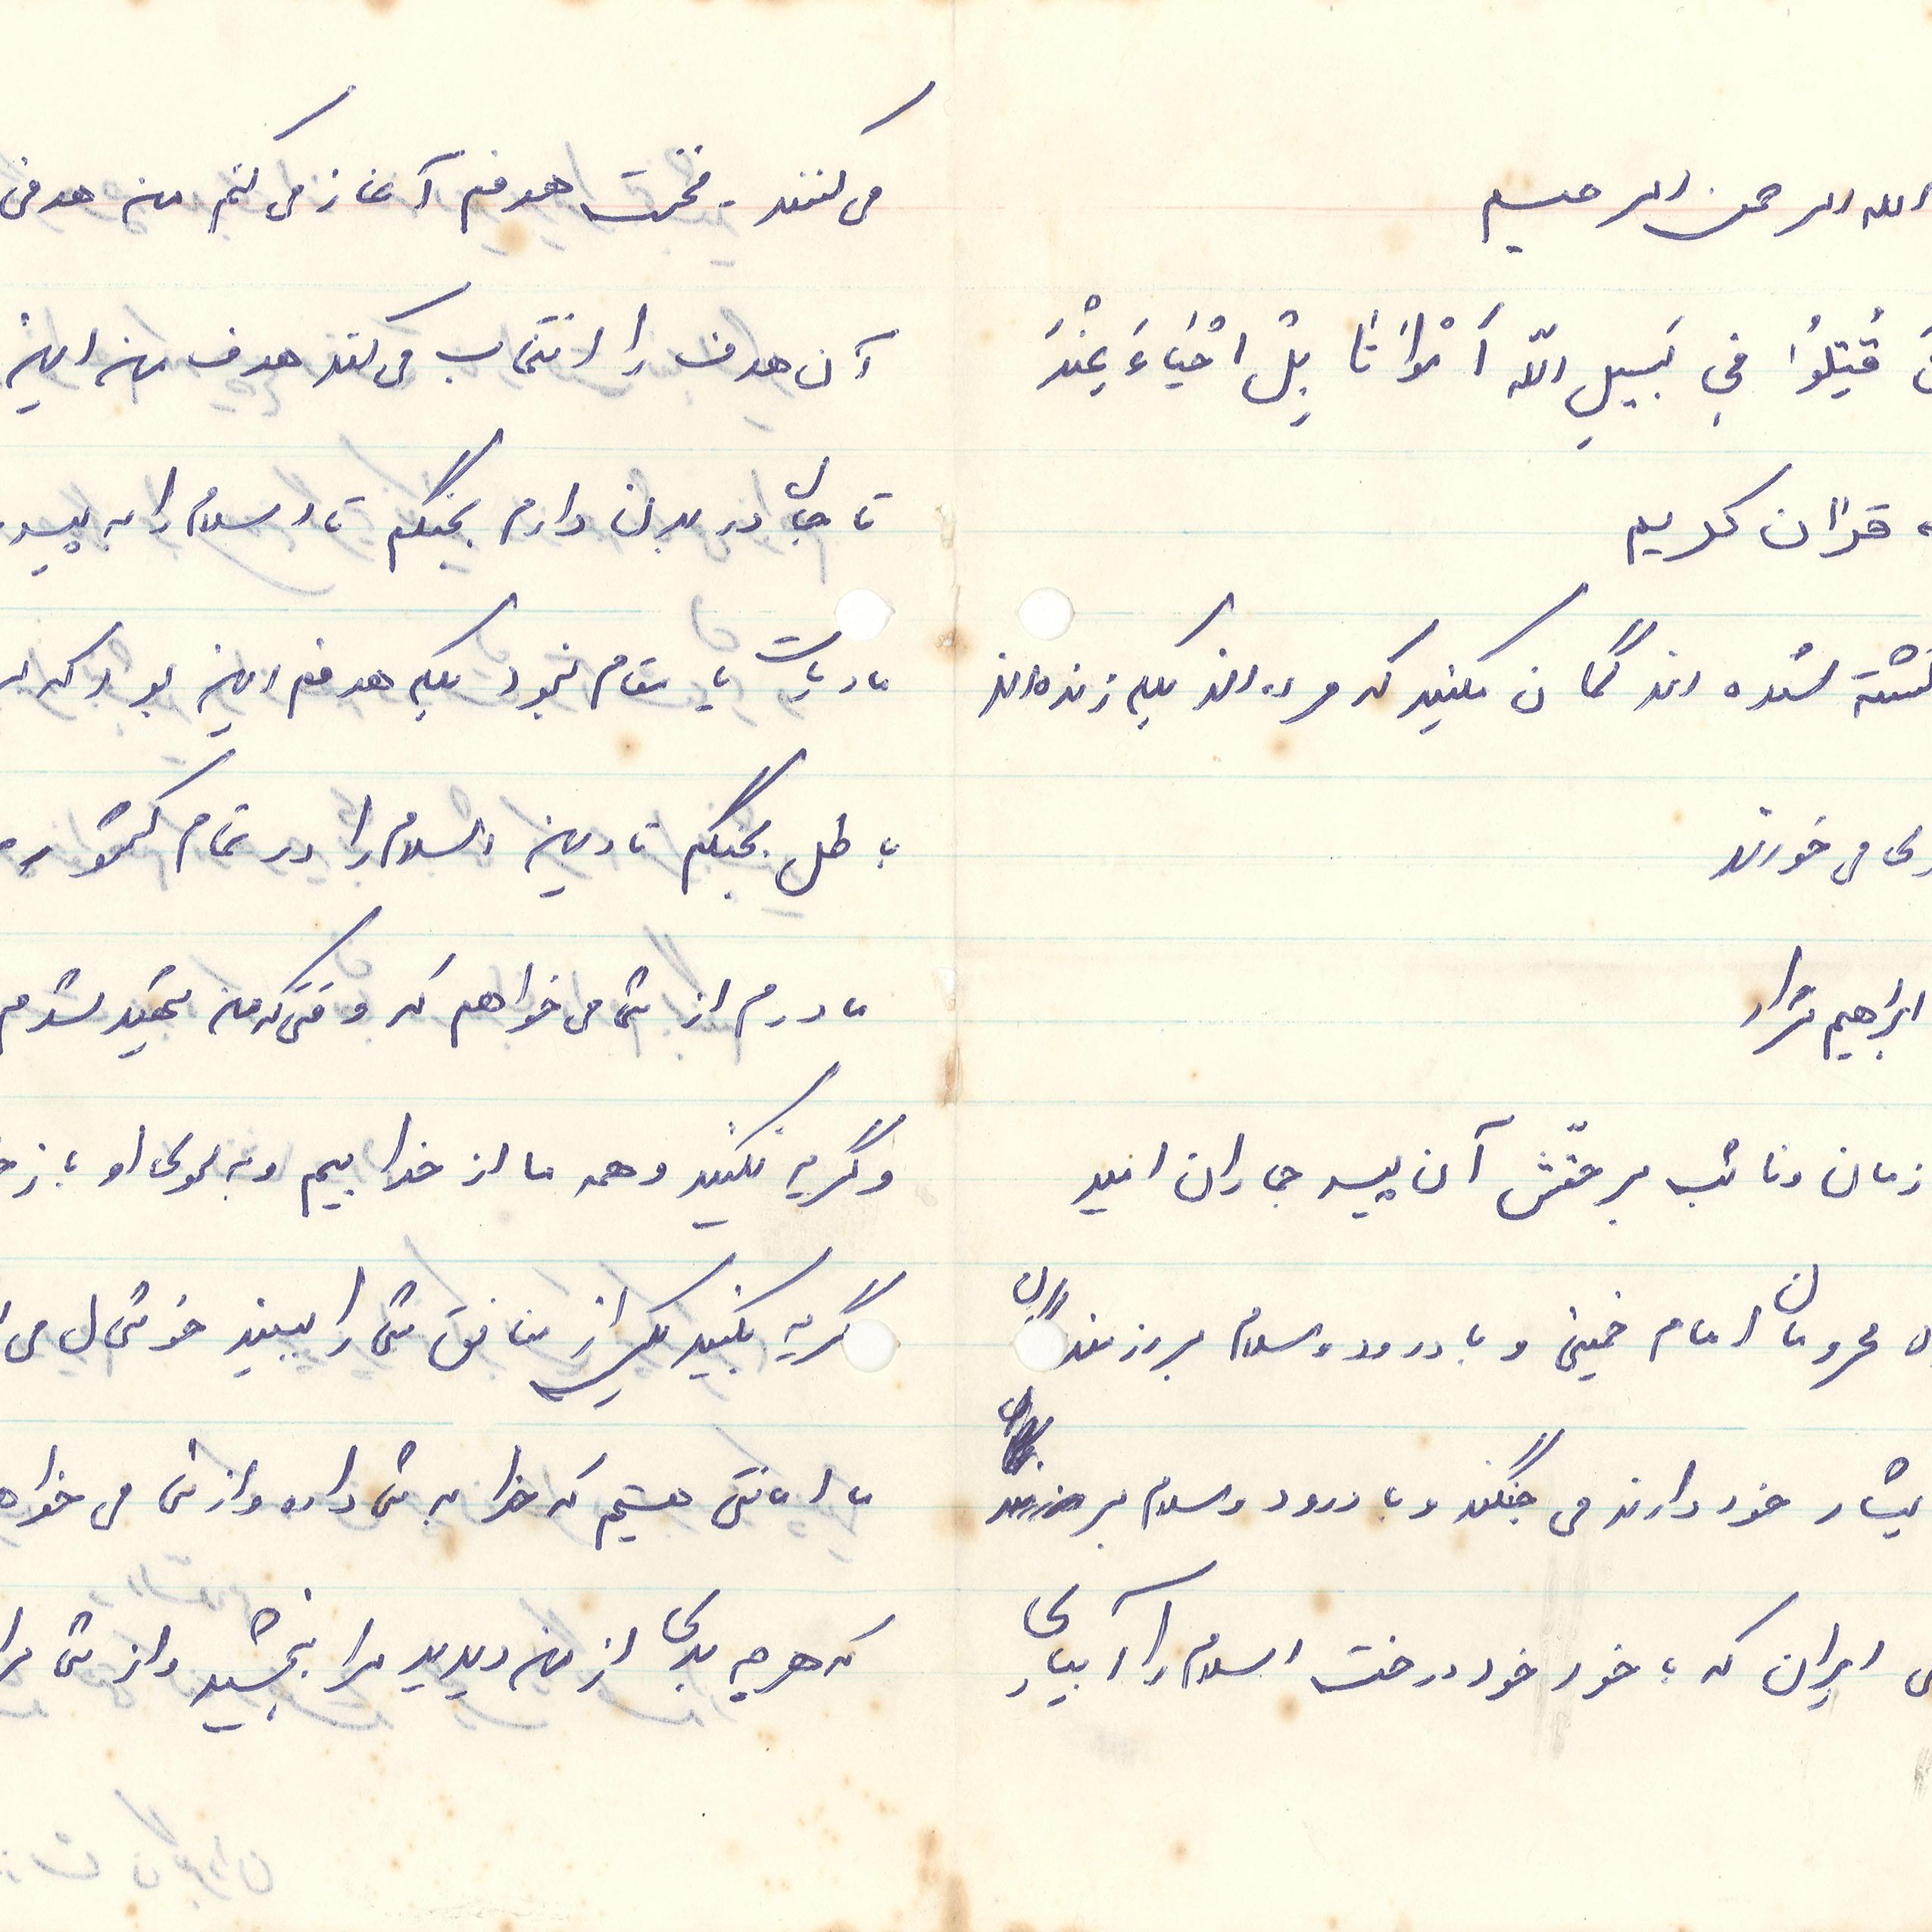 الله الرحمن الرحیم
قُتِلُوا فِی سَبیلِ اللّه اَمْوَاتَا بَلْ اَحْیَاءَ عِنْدَ
قرآن کریم
کشته شده اند گمان مکنید که مرده اند بلکه زنده اند
می خورند
ابراهیم
زمان و نائب بر حقّش آن پیر جماران امید
محرومان امام خمینی و با درود و سلام بر رزمندگان
خود دارند می جنگند و با درود و سلام بر
ایران که با خود خود درخت اسلام را آبیاری
می کنند - نخست هدفم آغاز می کنم من هدفی
آن هدف را انتخاب می کند هدف من این
تا جان در بدن دارم بجنگم تا اسلام را به
مادیات یا مقام نبود بلکه هدفم این بود که
باطل بجنگم تا دین اسلام را در تمام کشور
مادرم از شما می خواهم که وقتی که من شهید شدم
و گریه نکنید و همه ما از خداییم و به سوی او باز
گریه نکنید مگر از منافق شما را ببیند خوشحال می
ما امانتی هستیم که خدا به شما داده و از شما می
که هر چه بدی از من دیدید مرا ببخشید و از شما